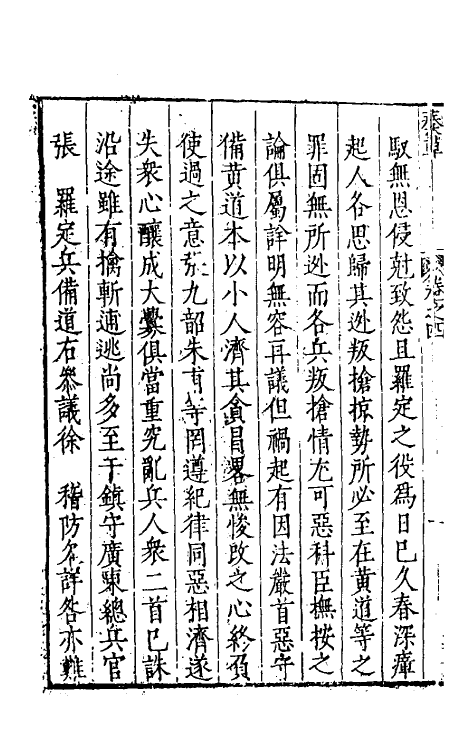 奏草 卷之四
馭無恩侵尅致怨且羅定之役爲日已久春深瘴
起人各思歸其逃叛搶掠勢所必至在黄道等之
罪固無所逃而各兵叛搶情尤可惡科臣撫按之
論俱屬詳明無容再議但禍起有因法嚴首惡守
備黄道本以小人濟其貪冒畧無悛改之心終負
使過之意張九韶朱有等罔遵紀律同惡相濟遂
失衆心釀成大釁俱當重究亂兵人衆二首已誅
沿途雖有擒斬逋逃尚多至于鎮守廣東總兵官
張 羅定兵備道右叅議徐 稽防欠詳咎亦難